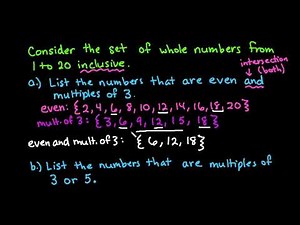 Consider the set of whole numbers from
1 to 20 inclusive.
intersection
(both)
a.) List the numbers that are even and
multiples of 3.
even: {2, 4, 6, 8, 10, 12, 14, 16, 18, 20}
mult. of 3: {3, 6, 9, 12, 15, 18}
even and mult. of 3: {6, 12, 18}
b.) List the numbers that are multiples of
3 or 5.